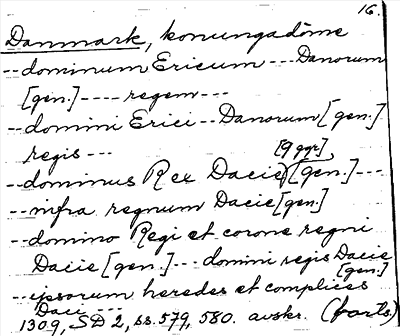 16.
Danmark, konungadöme
-- dominum Ericum --- Danorum
[gen.] ---- regem ---
-- domini Erici -- Danorum [gen.]
regis ---
[9 ggr]
-- dominus Rex Dacie [gen.] ---
-- infra regnum Dacie [gen.]
-- domino Regi et corone regni
Dacie [gen.] --- domini regis Dacie
[gen.]
-- ipsorum heredes et complices
Daci ---
1309, SD 2, ss. 579, 580. avskr. (forts.)